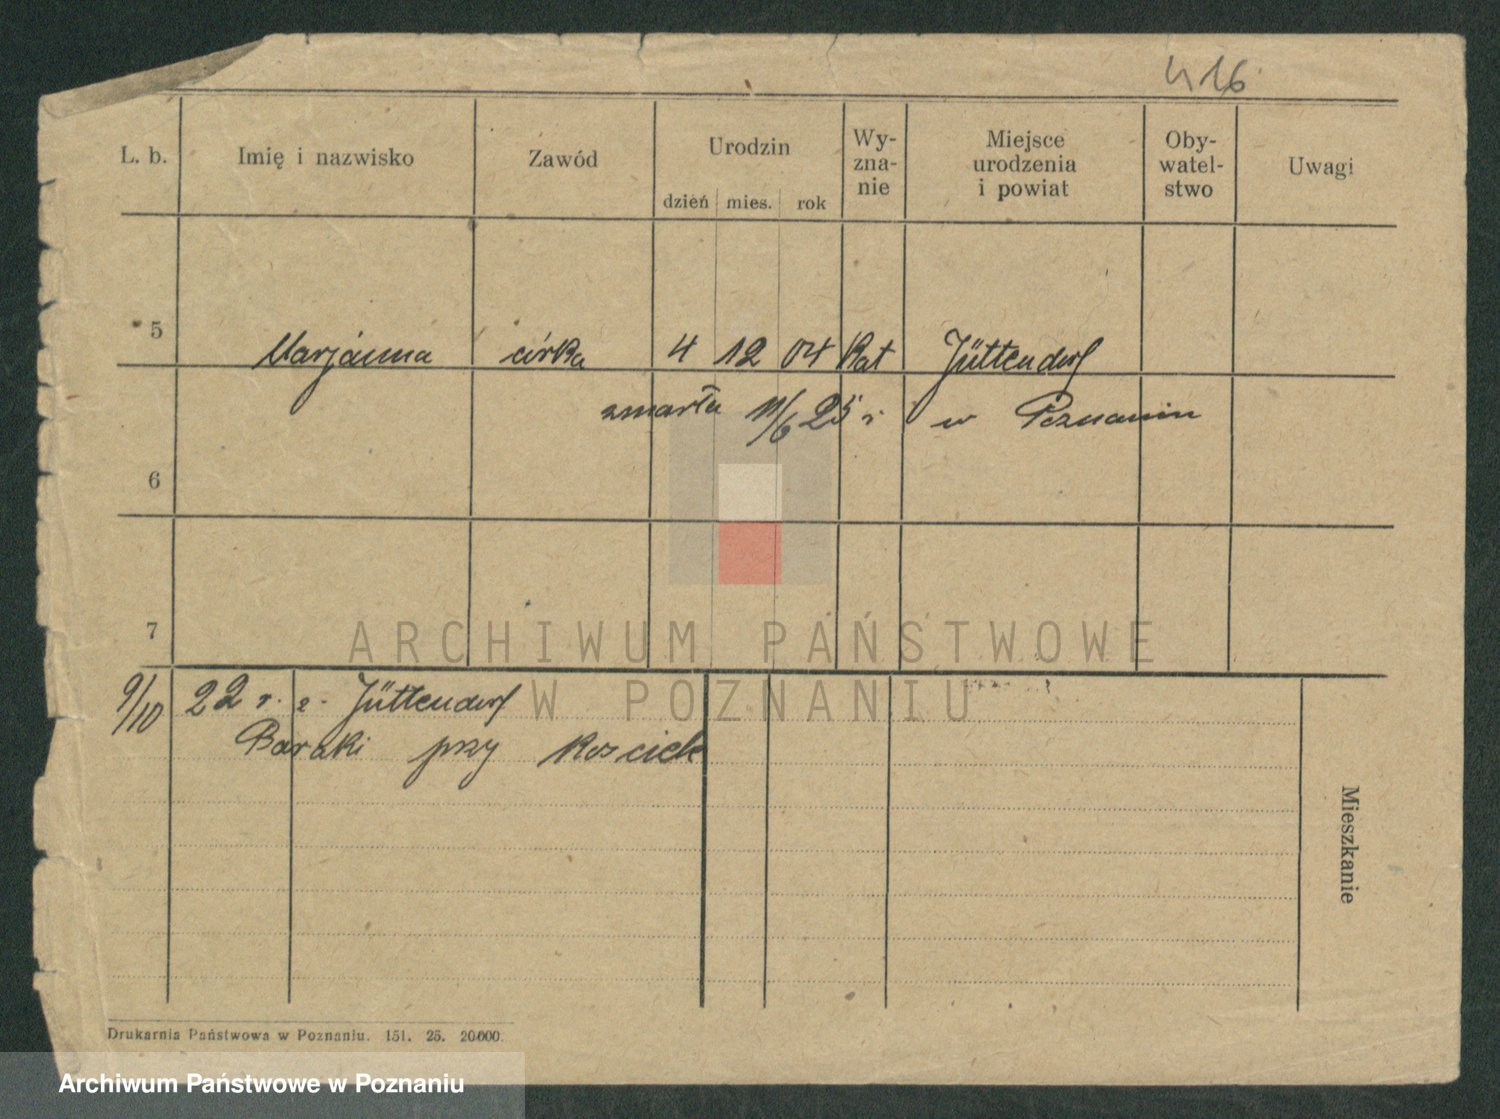 416
L. b. Imię i nazwisko Zawód Urodzin dzień mies. rok Wy-zna-nie Miejsce urodzenia i powiat Oby-watel-stwo Uwagi
5 Marjanna córka 4 12 04 Kat Jüttendorf
zmarła 11/6 25 r. w Poznaniu
6
7
ARCHIWUM PAŃSTWOWE
W POZNANIU
9/10 22 r. z. Jüttendorf
Baraki przy
Mieszkanie
Drukarnia Państwowa w Poznaniu. 151. 25. 20.000.
Archiwum Państwowe w Poznaniu